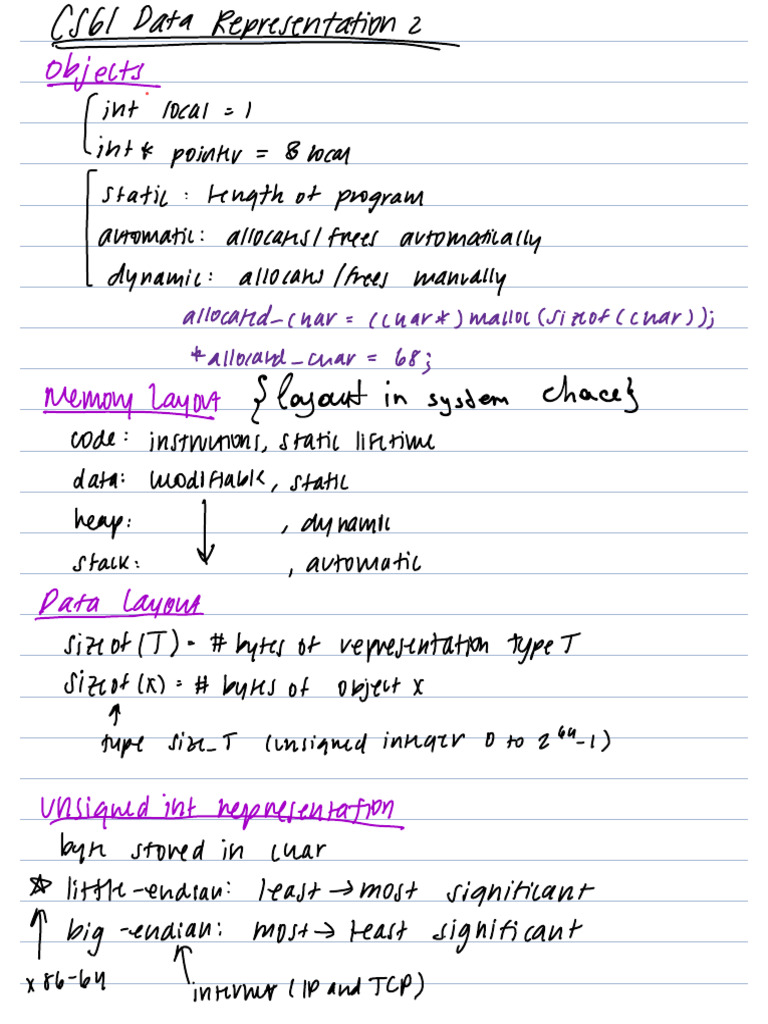 CS61 Data Representation 2
Objects
int local = 1
int* pointer = & local
static: length of program
automatic: allocates/frees automatically
dynamic: allocates/frees manually
allocated_char = (char*) malloc(sizeof(char));
*allocated_char = 68;
Memory layout {layout in system chace}
code: instructions, static lifetime
data: modifiable, static
heap: ↓ , dynamic
stack: , automatic
Data Layout
sizeof(T) = # bytes of representation type T
sizeof(x) = # bytes of object x
↑
type size_T (unsigned integer 0 to 2^64-1)
Unsigned int representation
byte stored in char
☆ little-endian: least → most significant
↑ big-endian: most → least significant
x86-64 ↑ internet (IP and TCP)